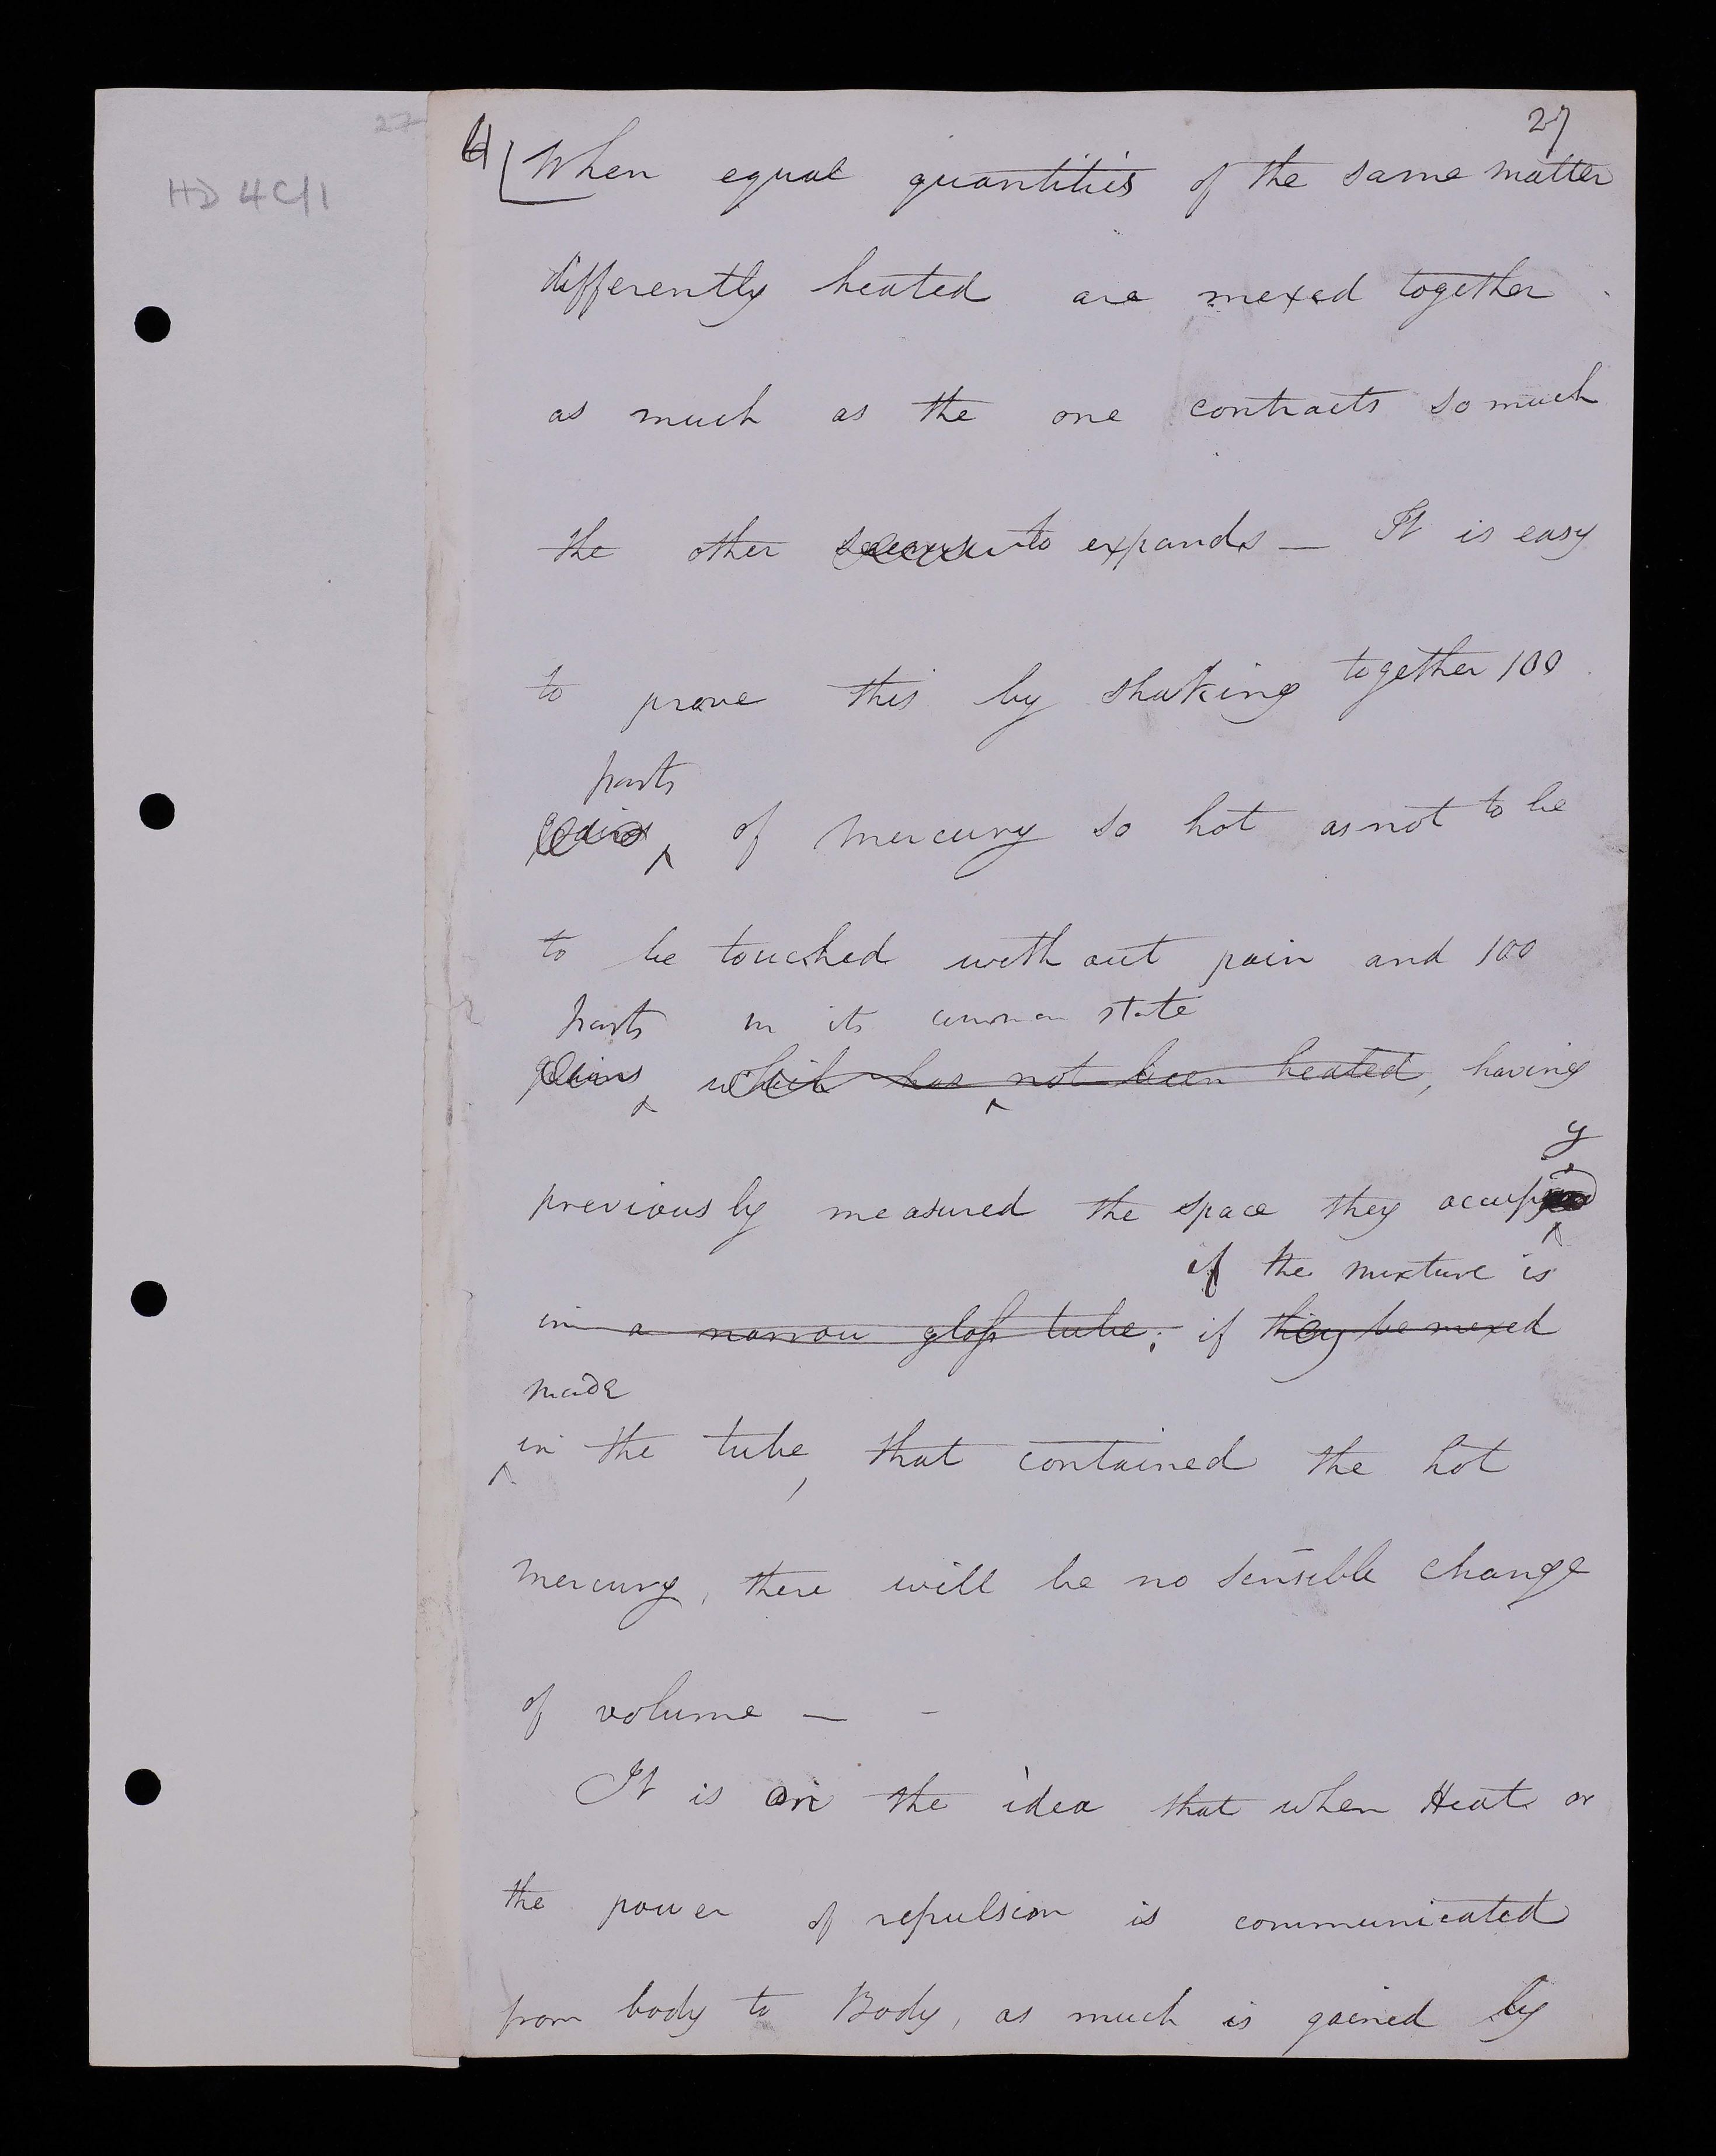 27
HD 4C/1
27
When equal quantities of the same matter
differently heated are mexed together
as much as the one contracts so much
the other to expands — It is easy
to prove this by shaking together 100
parts
of mercury so hot as not to be
to be touched with out pain and 100
parts in its common state
grains which has not been heated, having
y
previously measured the space they occupied
if the mixture is
in a narrow glass tube; if they be mexed
made
in the tube, that contained the hot
mercury, there will be no sensible change
of volume — -
It is on the idea that when Heat or
the power of repulsion is communicated
from body to Body, as much is gained by